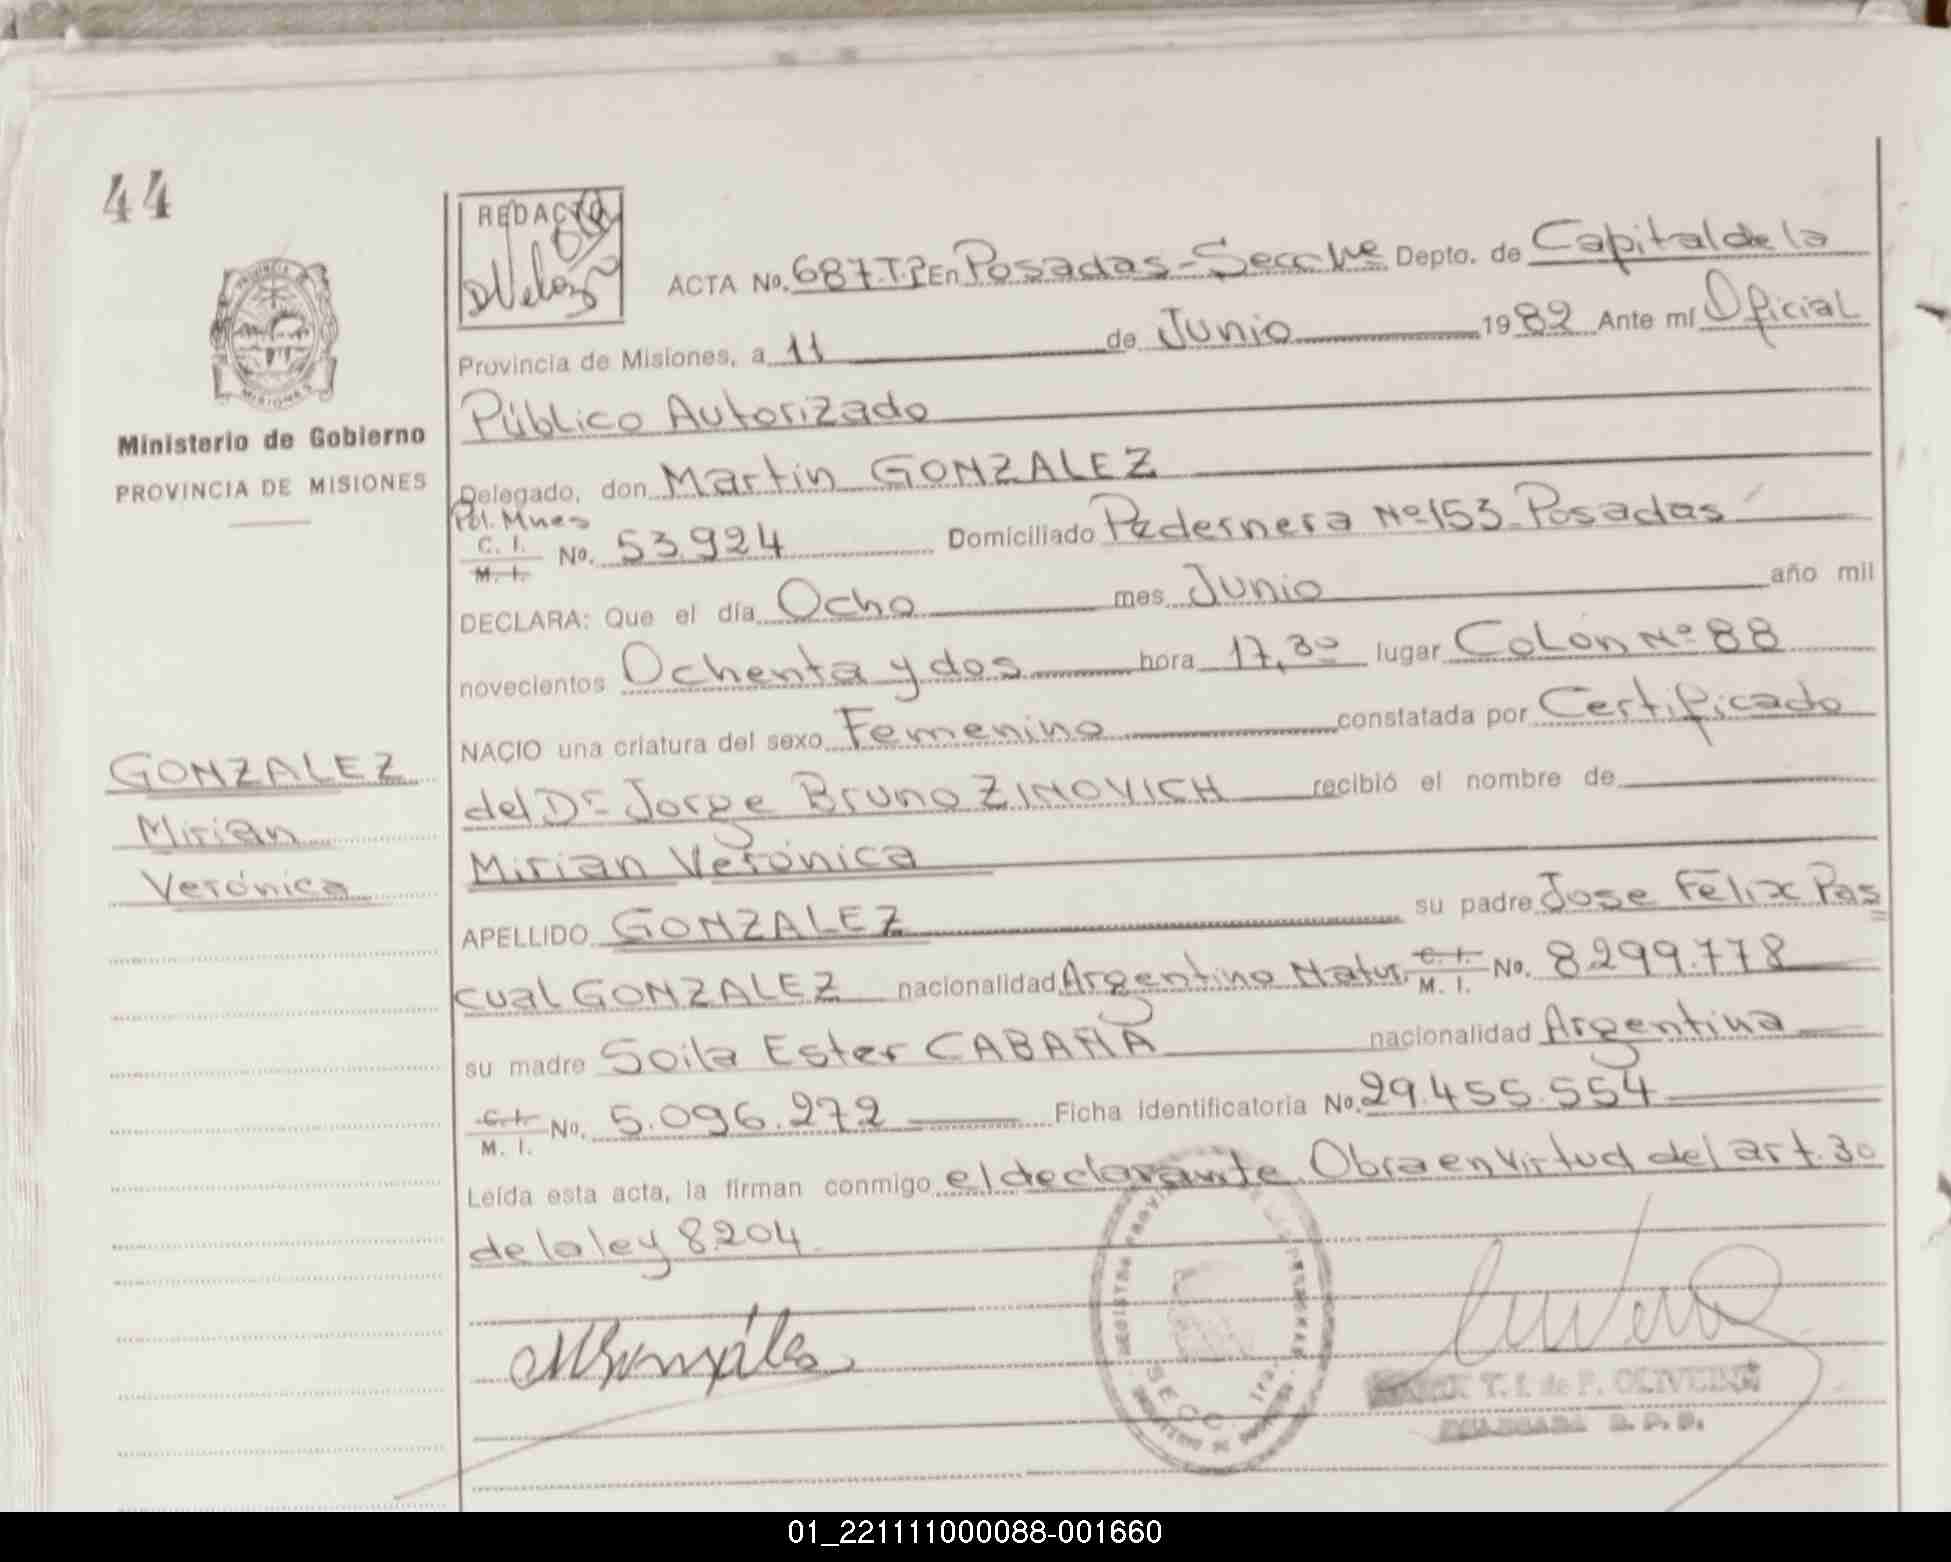 44
REDACTO
ACTA No. 687.T.2 En Posadas-Secc 1ra Depto. de Capital de la
Provincia de Misiones, a 11 de Junio 1982 Ante mí Oficial
Público Autorizado
Ministerio de Gobierno
PROVINCIA DE MISIONES
Delegado, don Martin GONZALEZ
Pol. Mnes
C. I.
M. I. No. 53.924 Domiciliado Pedernera Nº 153 Posadas
DECLARA: Que el día Ocho mes Junio año mil
novecientos Ochenta y dos hora 17,30 lugar Colón Nº 88
NACIO una criatura del sexo Femenino constatada por Certificado
GONZALEZ
Mirian
Verónica
del Dr Jorge Bruno ZINOVICH recibió el nombre de
Mirian Verónica
APELLIDO GONZALEZ su padre Jose Félix Pas
cual GONZALEZ nacionalidad Argentino Natur. C. I. M. I. No. 8.299.778
su madre Soila Ester CABAÑA nacionalidad Argentina
C. I. M. I. No. 5.096.272 Ficha identificatoria No. 29.455.554
Leída esta acta, la firman conmigo el declarante. Obra en virtud del art. 30
de la ley 8.204
SECC. 1ra.
T. I. de P. OLIVEIRA
01_221111000088-001660